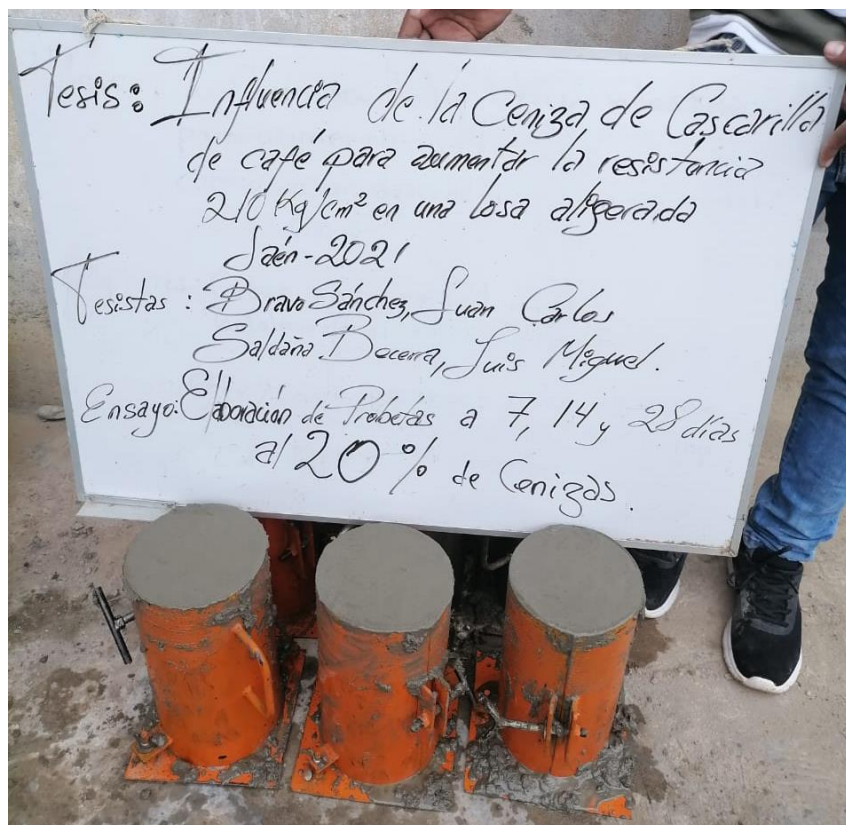 Tesis: Influencia de la Ceniza de Cascarilla
de café para aumentar la resistencia
210 Kg/cm² en una losa aligerada
Jaén-2021
Tesistas: Bravo Sánchez, Juan Carlos
Saldaña Becerra, Luis Miguel.
Ensayo: Elaboración de Probetas a 7, 14 y 28 días
al 20% de Cenizas.